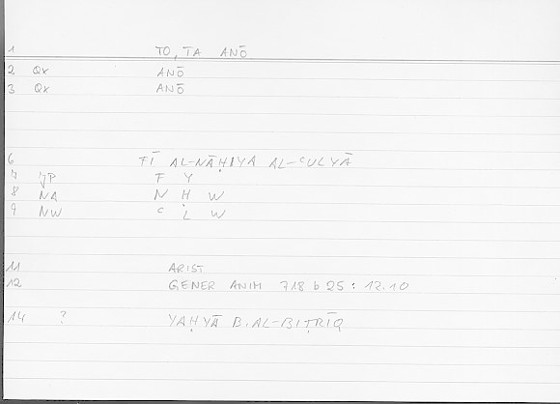 1 TO, TA ANŌ
2 QX ANŌ
3 QX ANŌ
6 FĪ AL-NĀḤIYA AL-ʿULYĀ
7 JP F Y
8 NA N Ḥ W
9 NW ʿ L W
11 ARIST
12 GENER ANIM 718 b 25 : 12.10
14 ? YAḤYĀ B. AL-BIṬRĪQ